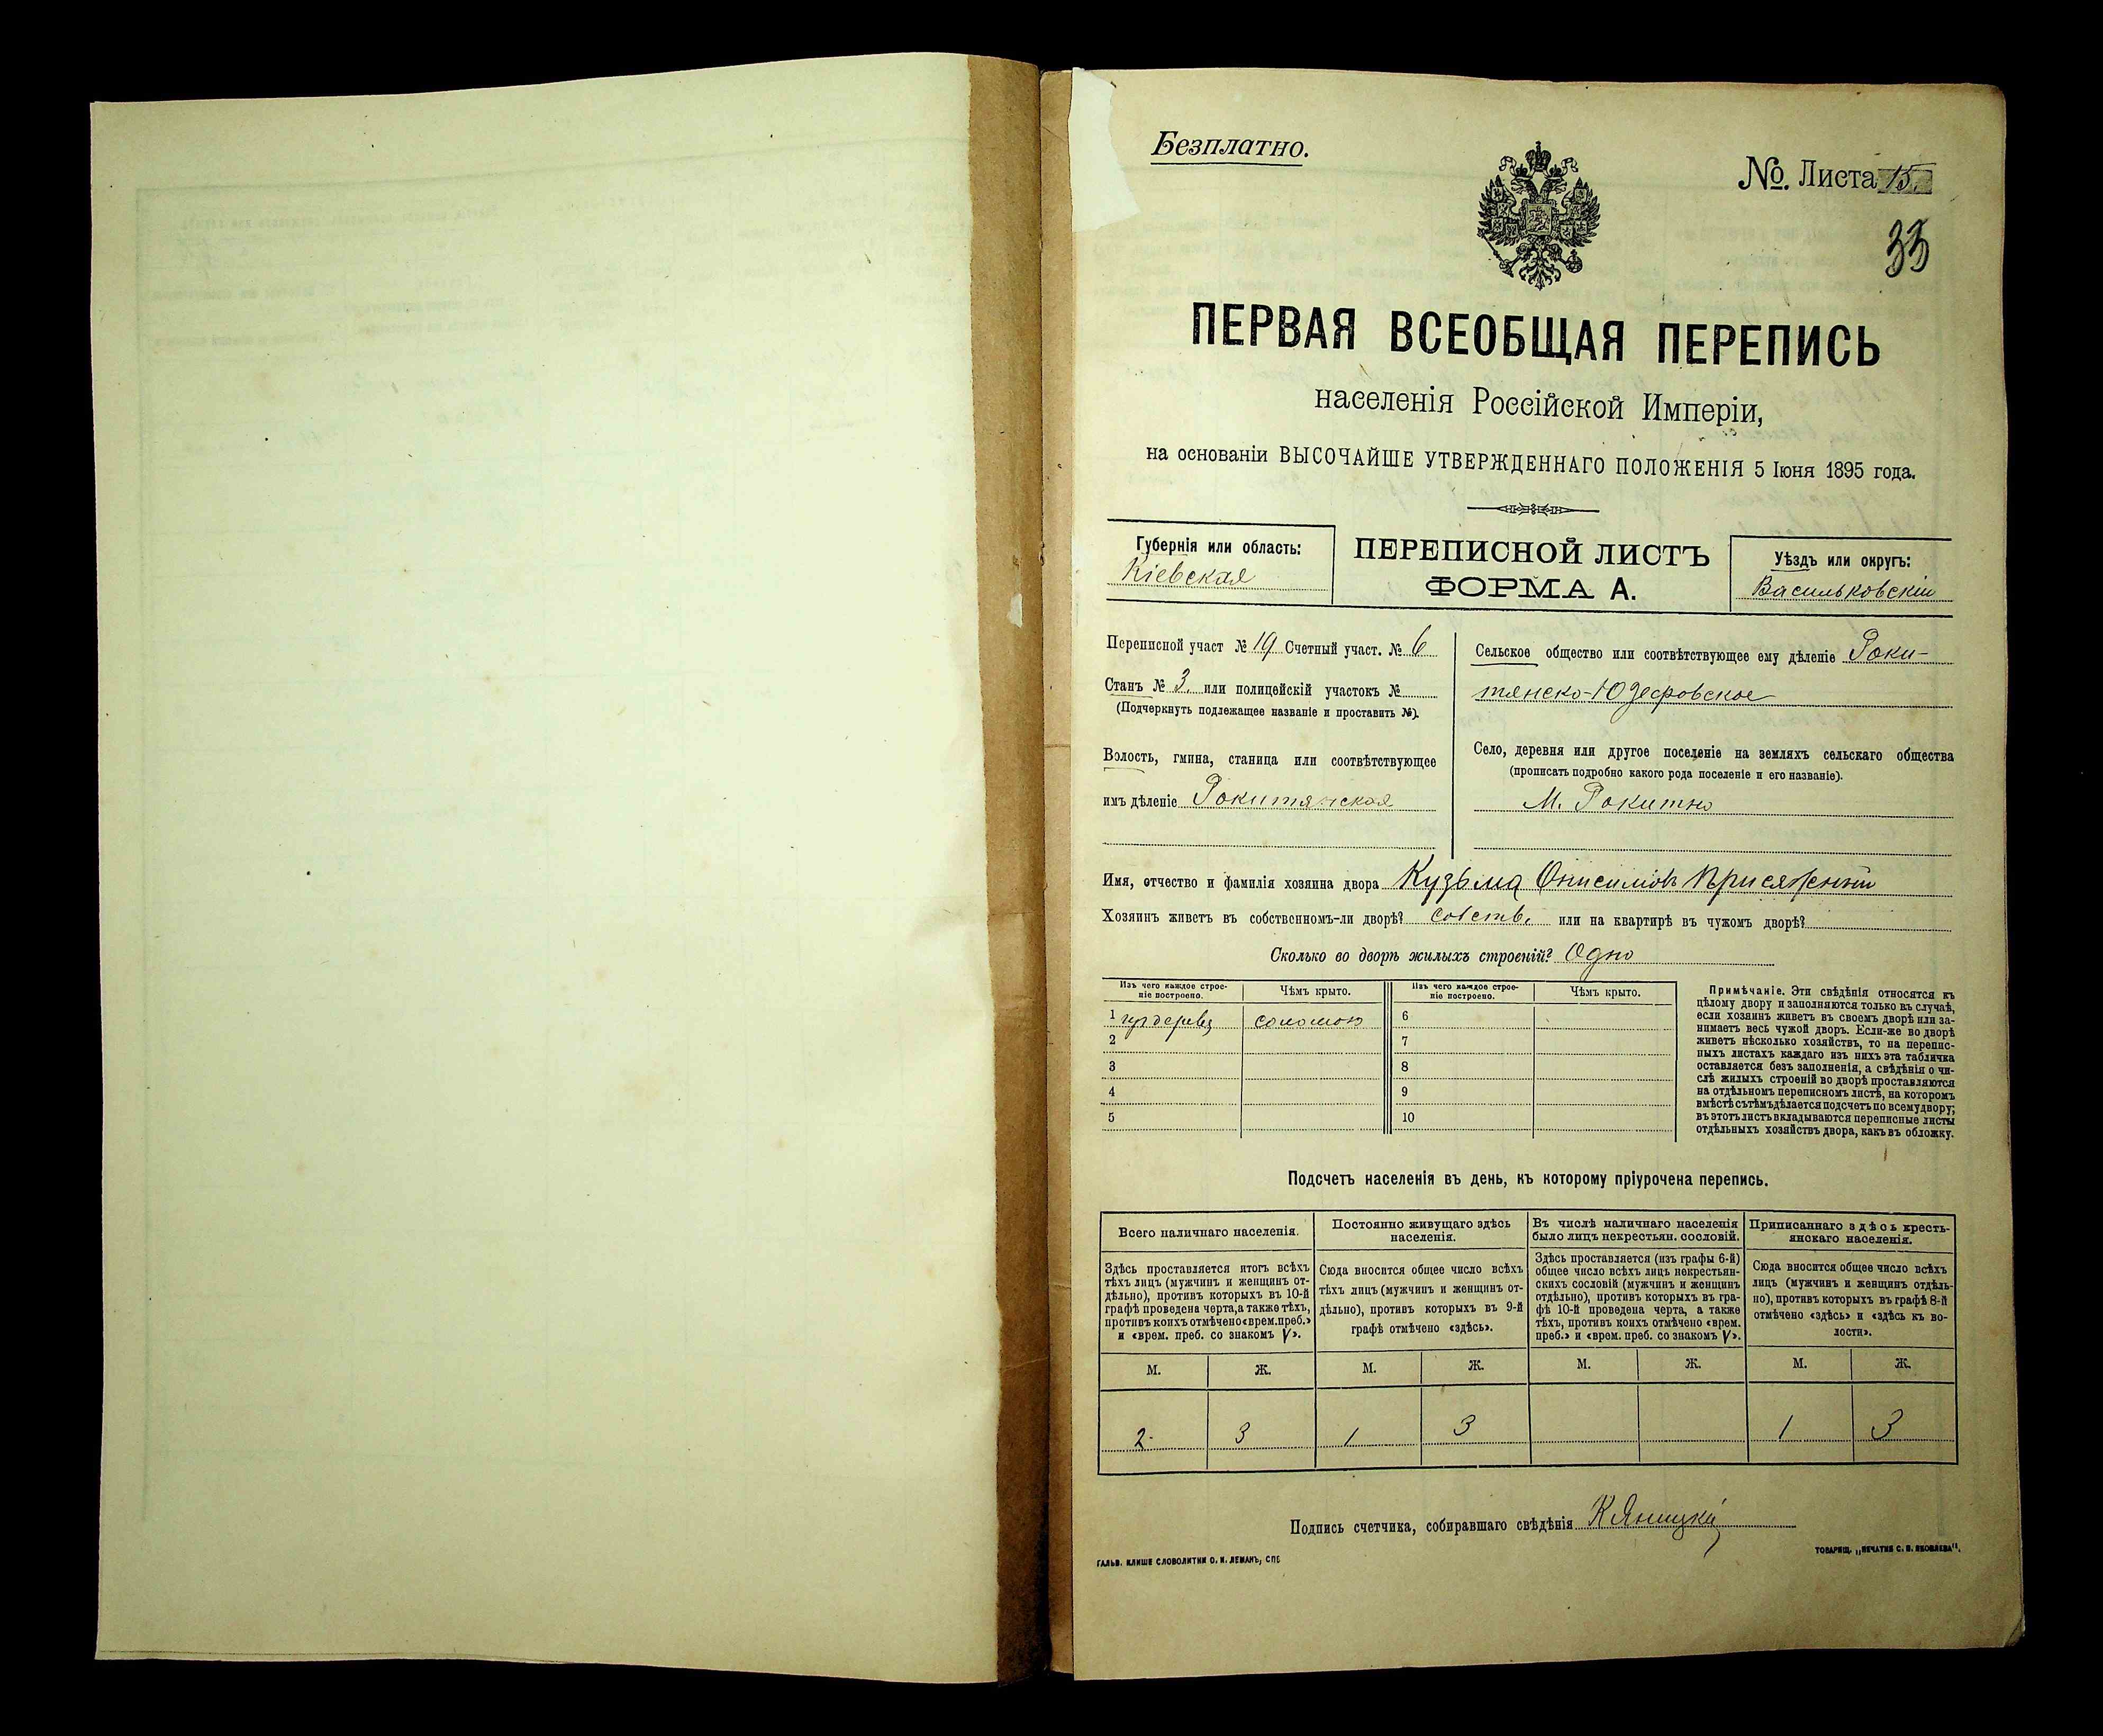 Безплатно.
№. Листа 15.
33
ПЕРВАЯ ВСЕОБЩАЯ ПЕРЕПИСЬ
населенія Россійской Имперіи,
на основаніи ВЫСОЧАЙШЕ УТВЕРЖДЕННАГО ПОЛОЖЕНІЯ 5 Іюня 1895 года.
Губернія или область:
Кіевская
ПЕРЕПИСНОЙ ЛИСТЪ
ФОРМА А.
Уѣздъ или округъ:
Васильковскій
Переписной участ № 19 Счетный участ. № 6
Станъ № 3. или полицейскій участокъ №
(Подчеркнуть подлежащее названіе и проставить №).
Волость, гмина, станица или соотвѣтствующее
имъ дѣленіе Рокитянская
Сельское общество или соотвѣтствующее ему дѣленіе Роки-
тянско-Юзефовское
Село, деревня или другое поселеніе на земляхъ сельскаго общества
(прописать подробно какого рода поселеніе и его названіе).
М. Рокитно
Имя, отчество и фамилія хозяина двора Кузьма Онисимовъ Присяжный
Хозяинъ живетъ въ собственномъ-ли дворѣ? собств. или на квартирѣ въ чужомъ дворѣ?
Сколько во дворѣ жилыхъ строеній? Одно
Изъ чего каждое строе-
ніе построено.
Чѣмъ крыто.
Изъ чего каждое строе-
ніе построено.
Чѣмъ крыто.
1 изъ дерева соломою 6
2 7
3 8
4 9
5 10
Примѣчаніе. Эти свѣдѣнія относятся къ
цѣлому двору и заполняются только въ случаѣ,
если хозяинъ живетъ въ своемъ дворѣ или за-
нимаетъ весь чужой дворъ. Если-же во дворѣ
живетъ нѣсколько хозяйствъ, то на перепис-
ныхъ листахъ каждаго изъ нихъ эта табличка
оставляется безъ заполненія, а свѣдѣнія о чи-
слѣ жилыхъ строеній во дворѣ проставляются
на отдѣльномъ переписномъ листѣ, на которомъ
вмѣстѣ съ тѣмъ дѣлается подсчетъ по всему двору;
въ этотъ листъ вкладываются переписные листы
отдѣльныхъ хозяйствъ двора, какъ въ обложку.
Подсчетъ населенія въ день, къ которому пріурочена перепись.
Всего наличнаго населенія.
Здѣсь проставляется итогъ всѣхъ
тѣхъ лицъ (мужчинъ и женщинъ от-
дѣльно), противъ которыхъ въ 10-й
графѣ проведена черта, а также тѣхъ,
противъ коихъ отмѣчено «врем. преб.»
и «врем. преб. со знакомъ V».
Постоянно живущаго здѣсь
населенія.
Сюда вносится общее число всѣхъ
тѣхъ лицъ (мужчинъ и женщинъ от-
дѣльно), противъ которыхъ въ 9-й
графѣ отмѣчено «здѣсь».
Въ числѣ наличнаго населенія
было лицъ некрестьян. сословій.
Здѣсь проставляется (изъ графы 6-й)
общее число всѣхъ лицъ некрестьян-
скихъ сословій (мужчинъ и женщинъ
отдѣльно), противъ которыхъ въ гра-
фѣ 10-й проведена черта, а также
тѣхъ, противъ коихъ отмѣчено «врем.
преб.» и «врем. преб. со знакомъ V».
Приписаннаго здѣсь кресть-
янскаго населенія.
Сюда вносится общее число всѣхъ
лицъ (мужчинъ и женщинъ отдѣль-
но), противъ которыхъ въ графѣ 8-й
отмѣчено «здѣсь» и «здѣсь къ во-
лости».
М. Ж. М. Ж. М. Ж. М. Ж.
2 3 1 3 1 3
Подпись счетчика, собиравшаго свѣдѣнія К Яницкій
ГАЛЬВ. КЛИШЕ СЛОВОЛИТНИ О. И. ЛЕМАНЪ, СПБ
ТОВАРИЩ. „ПЕЧАТНЯ С. П. ЯКОВЛЕВА".